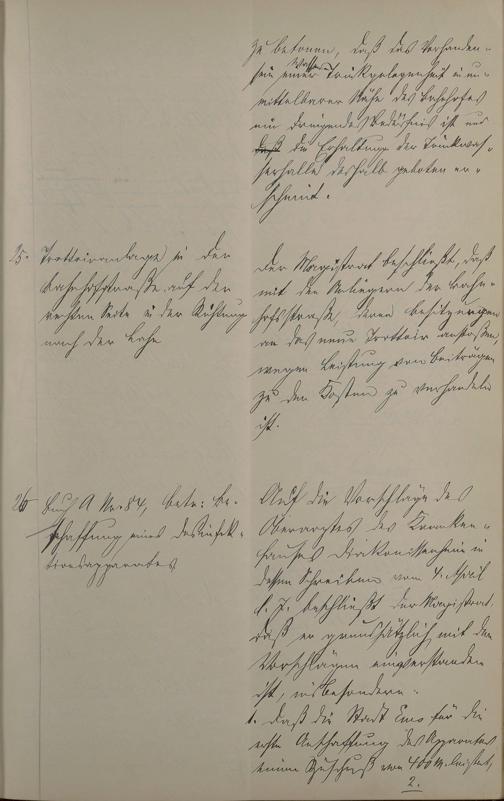 zu betonen, daß das Vorhanden-
sein einer Wasser Trinkgelegenheit in un-
mittelbarer Nähe des Bahnhofes
ein dringendes Bedürfnis ist und
daß die Erhaltung der Trinkwas-
serhalle deshalb geboten er-
scheint.
25. Trottoiranlage in der
Bahnhofstraße auf der
rechten Seite in der Richtung
nach der Lahn
Der Magistrat beschließt, daß
mit den Anliegern der Bahn-
hofstraße, deren Besitzungen
an das neue Trottoir anstoßen,
wegen Leistung von Beiträgen
zu den Kosten zu verhandeln
ist.
26 Buch A Nr. 84, betr: Be-
schaffung eines Desinfek-
tionsapparates
Auf die Vorschläge des
Oberarztes des Kranken-
hauses Diakonissenheim in
dessen Schreiben vom 4. April
l. J. beschließt der Magistrat,
daß er grundsätzlich mit den
Vorschlägen einverstanden
ist, insbesondere:
1. daß die Stadt Ems für die
erste Anschaffung des Apparates
einen Zuschuß von 400 M. leistet,
2.